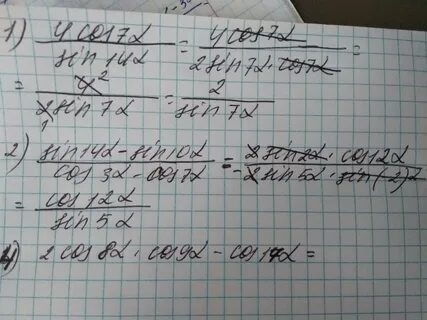 1) 4cos7α / sin14α = 4cos7α / 2sin7α·cos7α =
= 4² / 2₁sin7α = 2 / sin7α
2) sin14α-sin10α / cos3α-cos7α = 2sin2α·cos12α / -2sin5α·sin(-2)α
= cos12α / sin5α
4) 2cos8α·cos9α-cos17α=